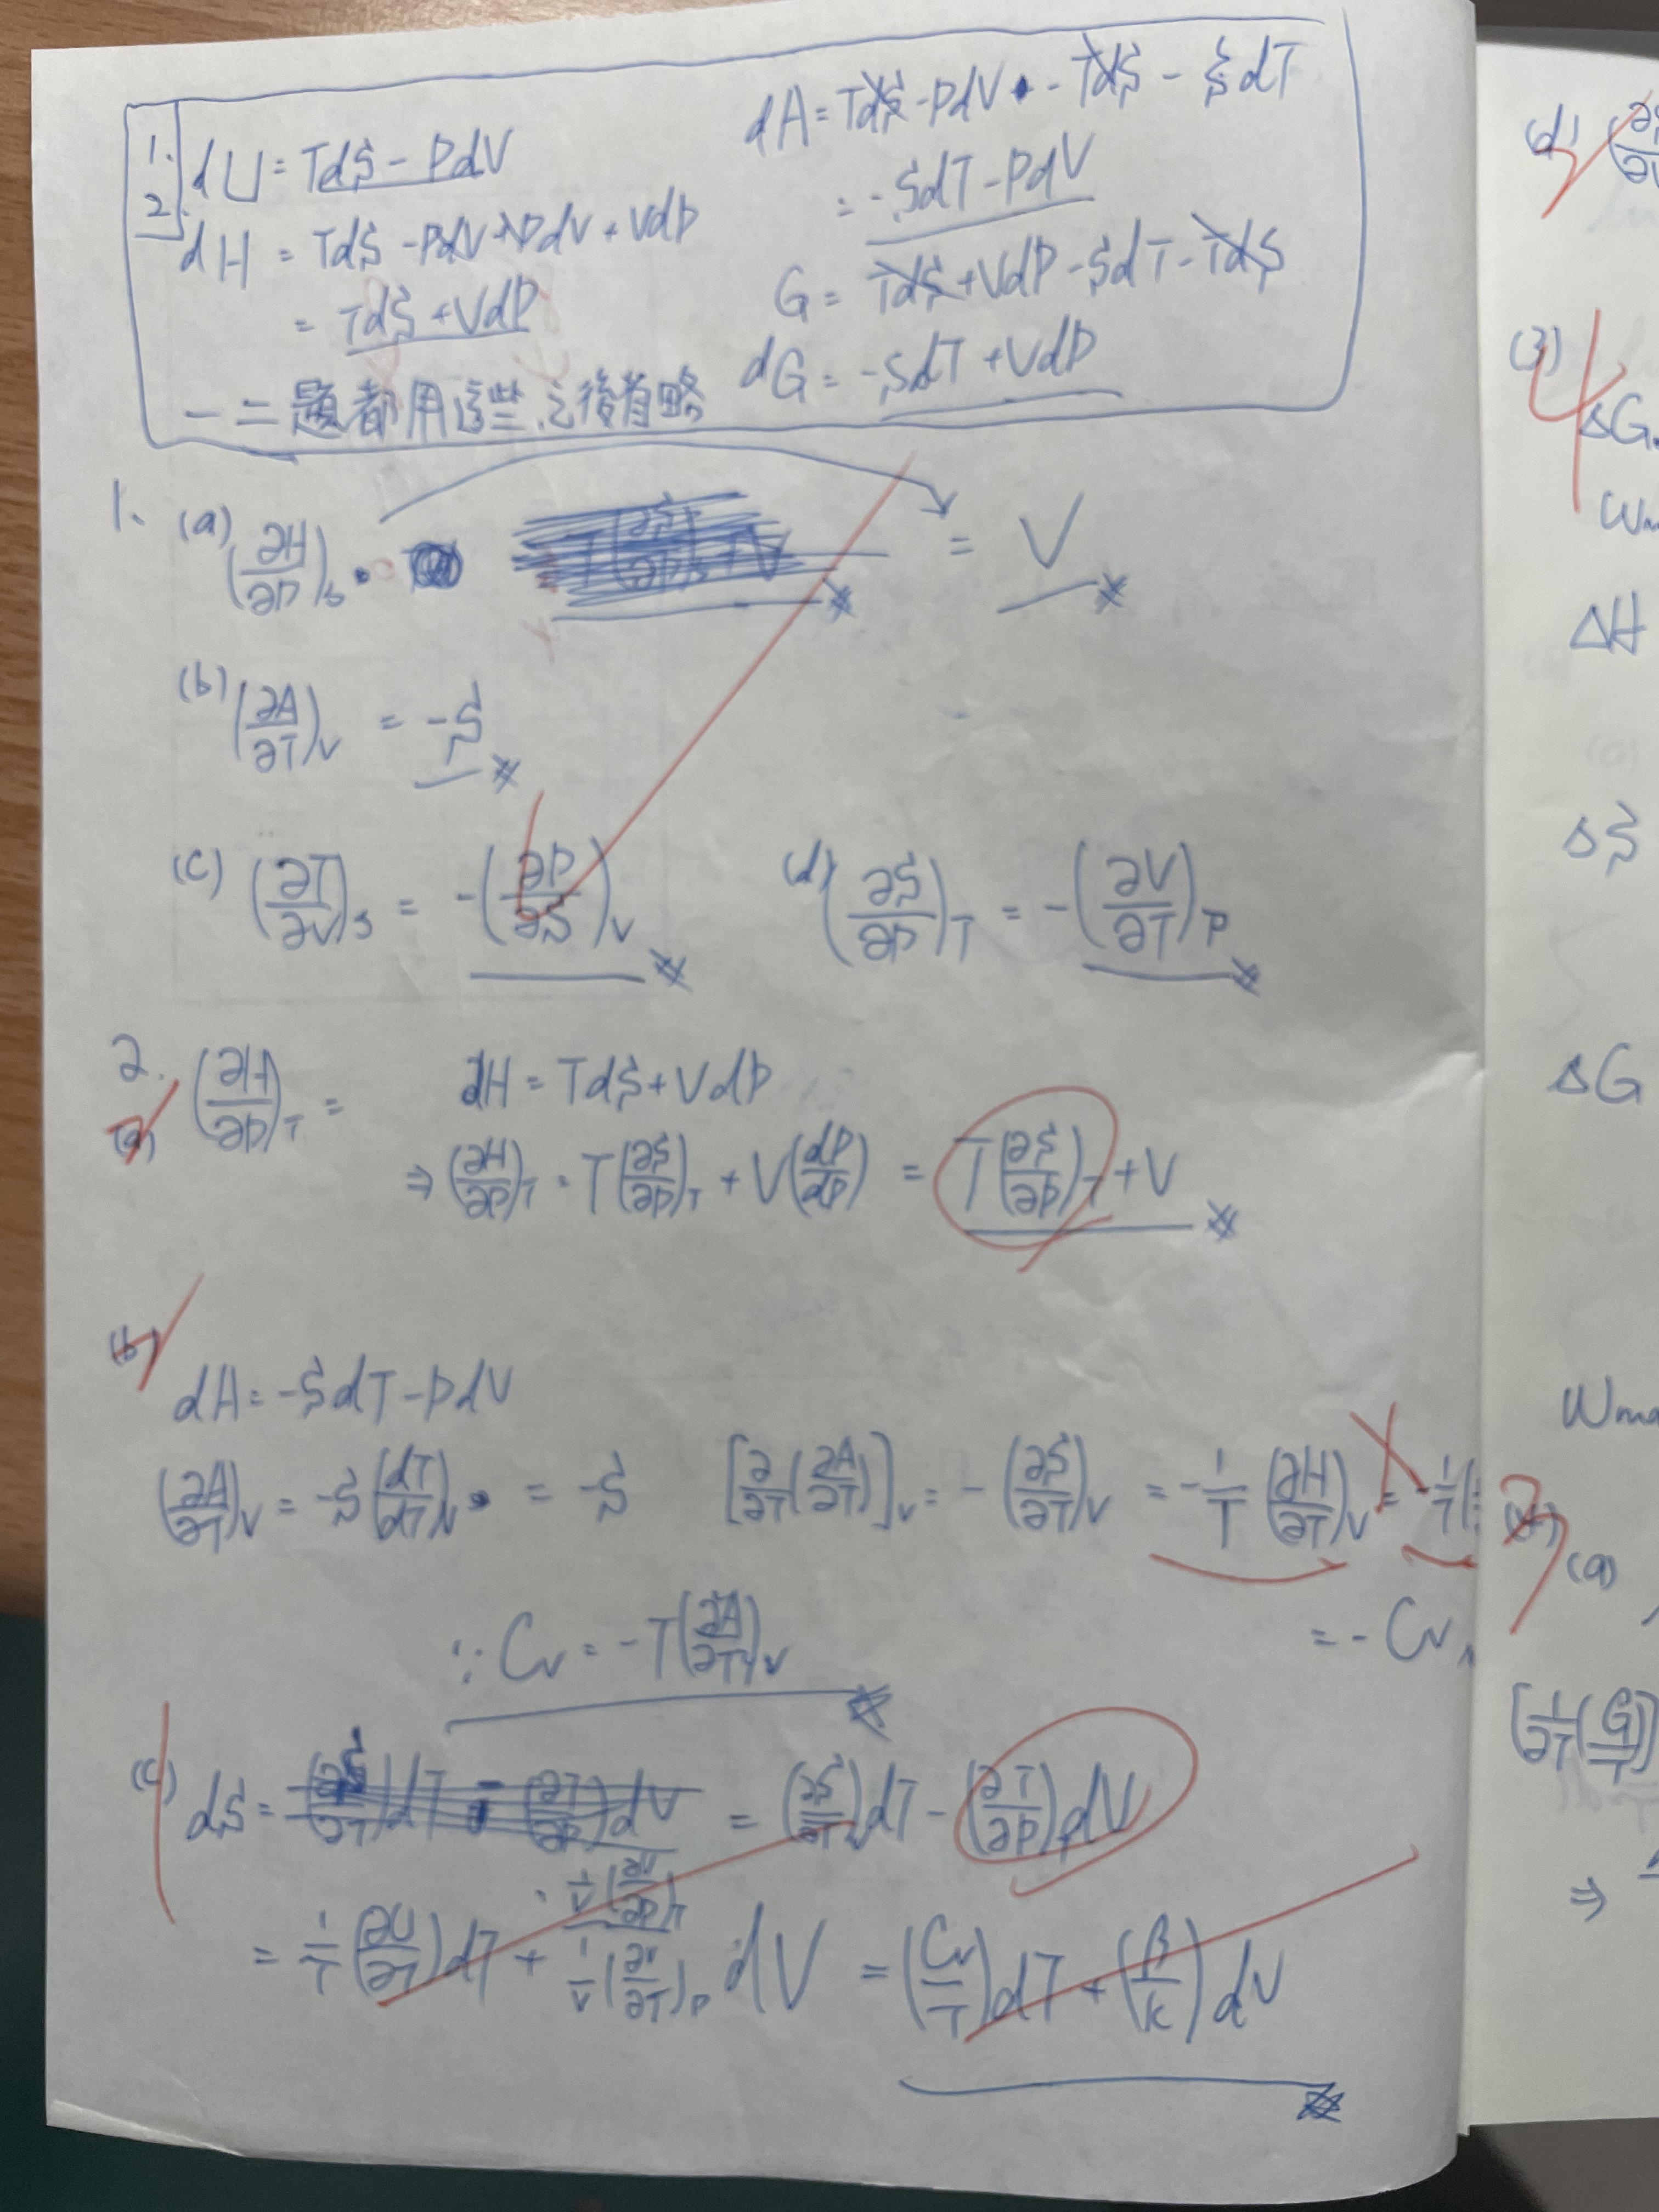 1. 2. dU = TdS - PdV
dH = TdS - PdV + PdV + VdP
= TdS + VdP
一二題都用這些,之後省略
dA = TdS - PdV - TdS - SdT
= -SdT - PdV
G = TdS + VdP - SdT - TdS
dG = -SdT + VdP
1. (a) (∂H/∂P)s = V
(b) (∂A/∂T)v = -S
(c) (∂T/∂V)s = -(∂P/∂S)v
(d) (∂S/∂P)T = -(∂V/∂T)P
2. (a) (∂H/∂P)T = dH = TdS + VdP
⇒ (∂H/∂P)T = T(∂S/∂P)T + V(dP/dP) = T(∂S/∂P)T + V
(b)
dA = -SdT - PdV
(∂A/∂T)v = -S(dT/dT)v = -S [∂/∂T(∂A/∂T)]v = -(∂S/∂T)v = -1/T (∂H/∂T)v = -1/T(
= - Cv
∵ Cv = -T(∂²A/∂T²)v
(c) dS = (∂S/∂T)v dT - (∂T/∂P)T dV
= 1/T (∂U/∂T) dT + 1/V(∂V/∂P)T / 1/V(∂V/∂T)P dV = (Cv/T)dT + (β/κ)dV
(d)
(3)
ΔG
ΔH
ΔS
ΔG
(a)
⇒